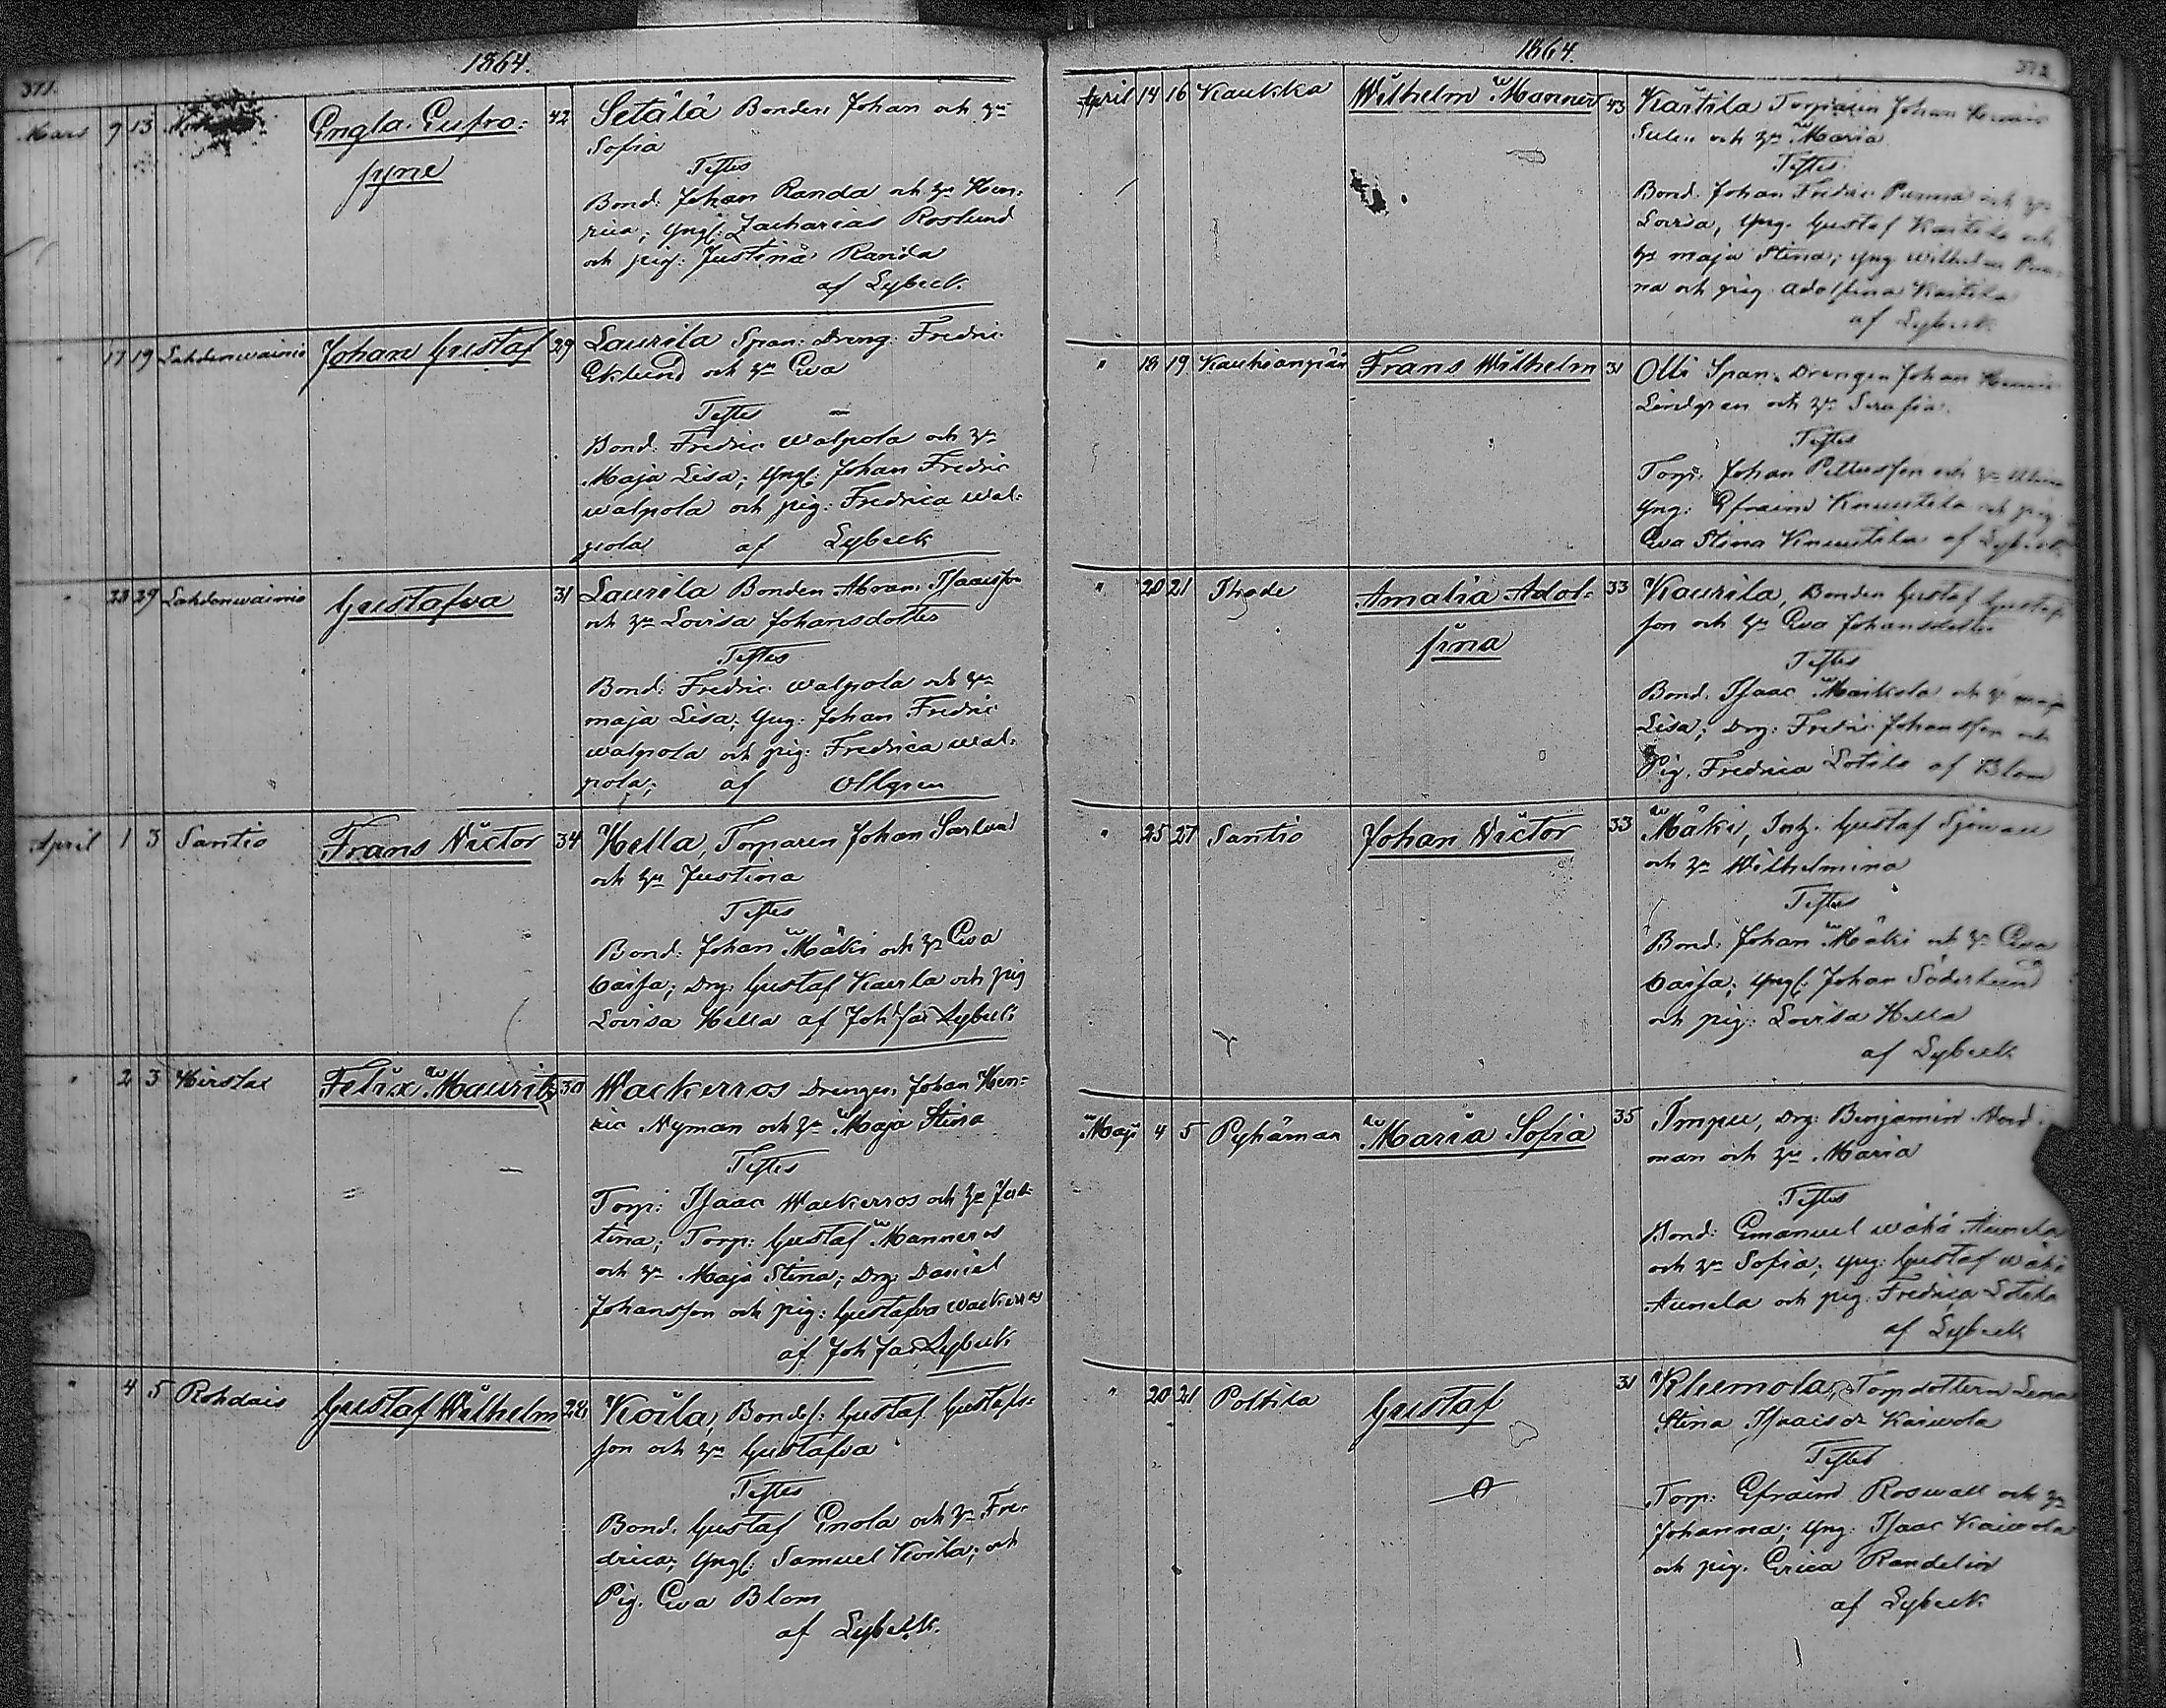 1864.
371.
Mars 9 13
Engla Eufro:
syne
42
Setälä Bonden Johan och h:u
Sofia
Testes
Bond: Johan Randa och h:u Hen:
rica; Yngl: Zacharias Roslund
och pig: Justina Randa
af Lybeck.
" 17 19 Lahdenwainio Johan Gustaf 29 Laurila Span: Dreng: Fredric
Eklund och h:u Eva
Testes
Bond: Fredric Walpola och h:u
Maja Lisa; Yngl: Johan Fredric
Walpola och pig: Fredrica Wal:
pola af Lybeck
" 28 29 Lahdenwainio Gustafva 31 Laurila Bonden Abram Isaacsson
och h:u Lovisa Johansdotter
Testes
Bond: Fredric Walpola och h:u
Maja Lisa; Yng: Johan Fredric
Walpola och pig: Fredrica Wal:
pola; af Ollgren
April 1 3 Santio Frans Victor 34 Hella, Torparen Johan
och h:u Justina
Testes
Bond: Johan Mäki och h:u Eva
Caisa; Drg: Gustaf Kaurla och pig
Lovisa Hella af Joh Jac Lybeck
" 2 3 Hirslax Felix Mauritz 30 Wackerros Drengen Johan Hen:
ric Nyman och h:u Maja Stina
Testes
Torp: Isaac Wackerros och h:u Jus:
tina; Torp: Gustaf Manneros
och h:u Maja Stina; Drg: Daniel
Johansson och pig: Gustafva Wackerros
af Joh Jac Lybeck
" 4 5 Rohdais Gustaf Wilhelm 28 Koila, Bondes: Gustaf Gustafs:
son och h:u Gustafva
Testes
Bond: Gustaf Enola och h:u Fre:
drica; Yngl: Samuel Koila; och
Pig. Eva Blom
af Lybeck.
1864.
372
April 14 16 Kaukka Wilhelm Manner 43 Kärtilä Torparen Johan Henric
och h:u Maria
Testes
Bond: Johan Fredric Punna och h:u
Lovisa, Yng. Gustaf och
h:u Maja Stina; Yng Wilhelm Pun:
na och pig Adolfina
af Lybeck
" 18 19 Kaukianpää Frans Wilhelm 31 Olli Span: Drengen Johan Henric
Lindgren och h:u Serafia.
Testes
Torp: Johan Pettersson och h:u
Yng: Efraim Knuutila och pig
Eva Stina Knuutila af Lybeck
" 20 21 Ihode Amalia Adol:
fina
33 Kaurila, Bonden Gustaf Gustafs
son och h:u Eva Johansdotter
Testes
Bond. Isaac Maikola och h:u Maja
Lisa; Drg: Fredric Johansson och
Pig. Fredrica Lotila af Blom
" 25 27 Santio Johan Victor 33 Mäki, Inh: Gustaf Sjöman
och h:u Wilhelmina
Testes
Bond: Johan Mäki och h:u Eva
Caisa; Yngl: Johan Söderlund
och pig: Lovisa Hella
af Lybeck
Maji 4 5 Pyhämaa Maria Sofia 35 Impu, Drg: Benjamin Nord:
man och h:u Maria
Testes
Bond: Emanuel Wähä Aunela
och h:u Sofia; Yng: Gustaf Wähä
Aunela och pig. Fredrica Lotila
af Lybeck
" 20 21 Polttila Gustaf 31 Klemola, Torpdottern Lena
Stina Isaacsdr Kaiwola
Testes
Torp: Efraim Roswall och h:u
Johanna; Yng: Isaac Kaiwola
och pig. Erica Randelin
af Lybeck